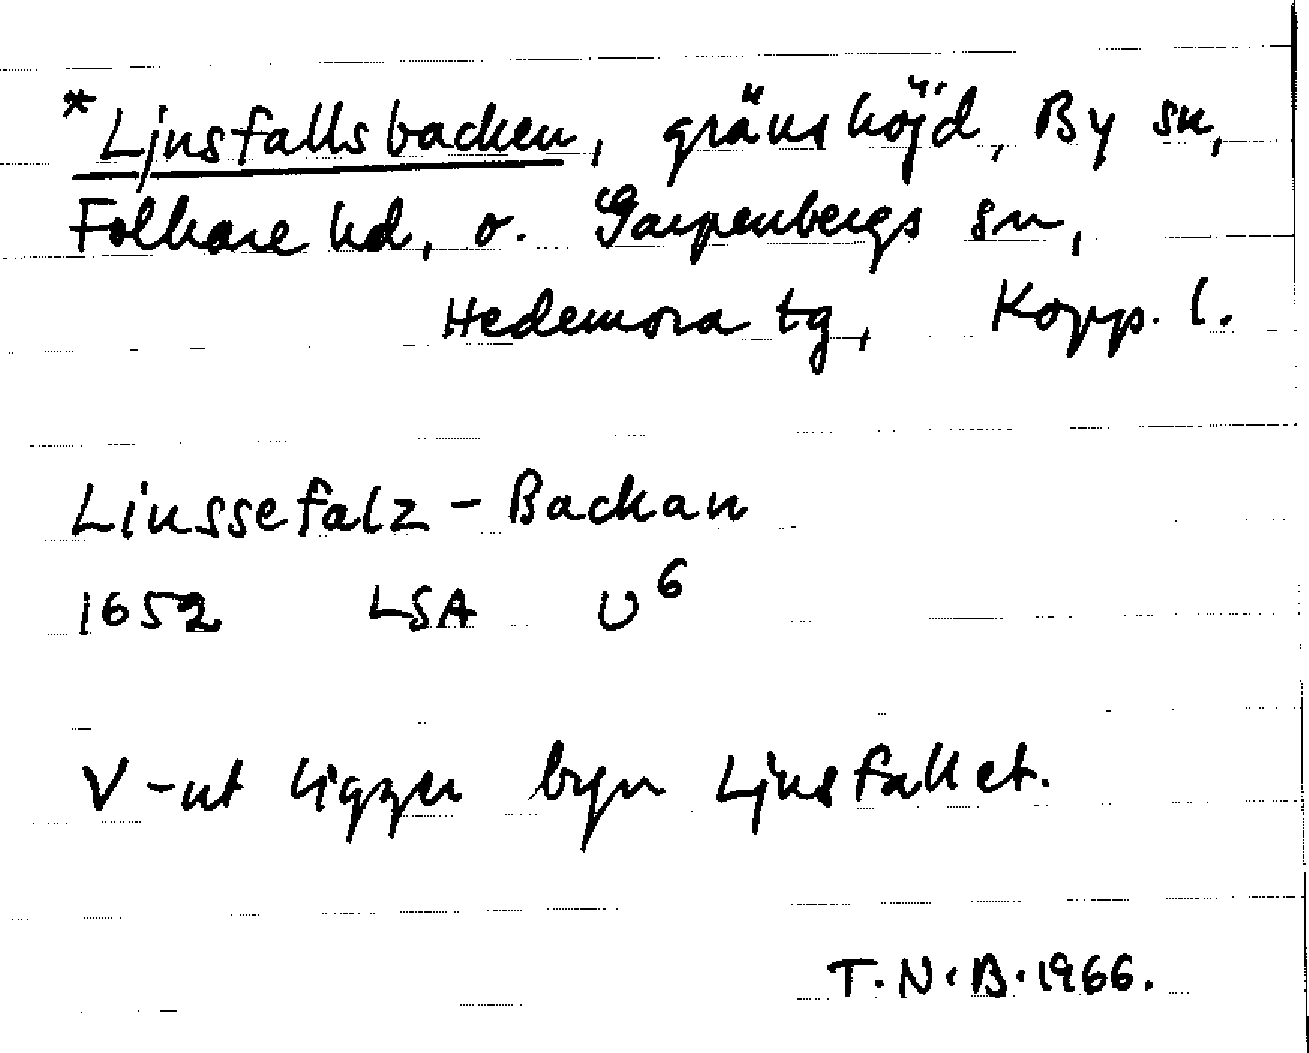 *Ljusfallsbacken, gränshöjd, By sn,
Folkare hd, o. Garpenbergs sn,
Hedemora tg, Kopp. l.
Liussefalz-Backan
1652 LSA U⁶
V-ut ligger byn Ljusfallet.
T.N.B. 1966.